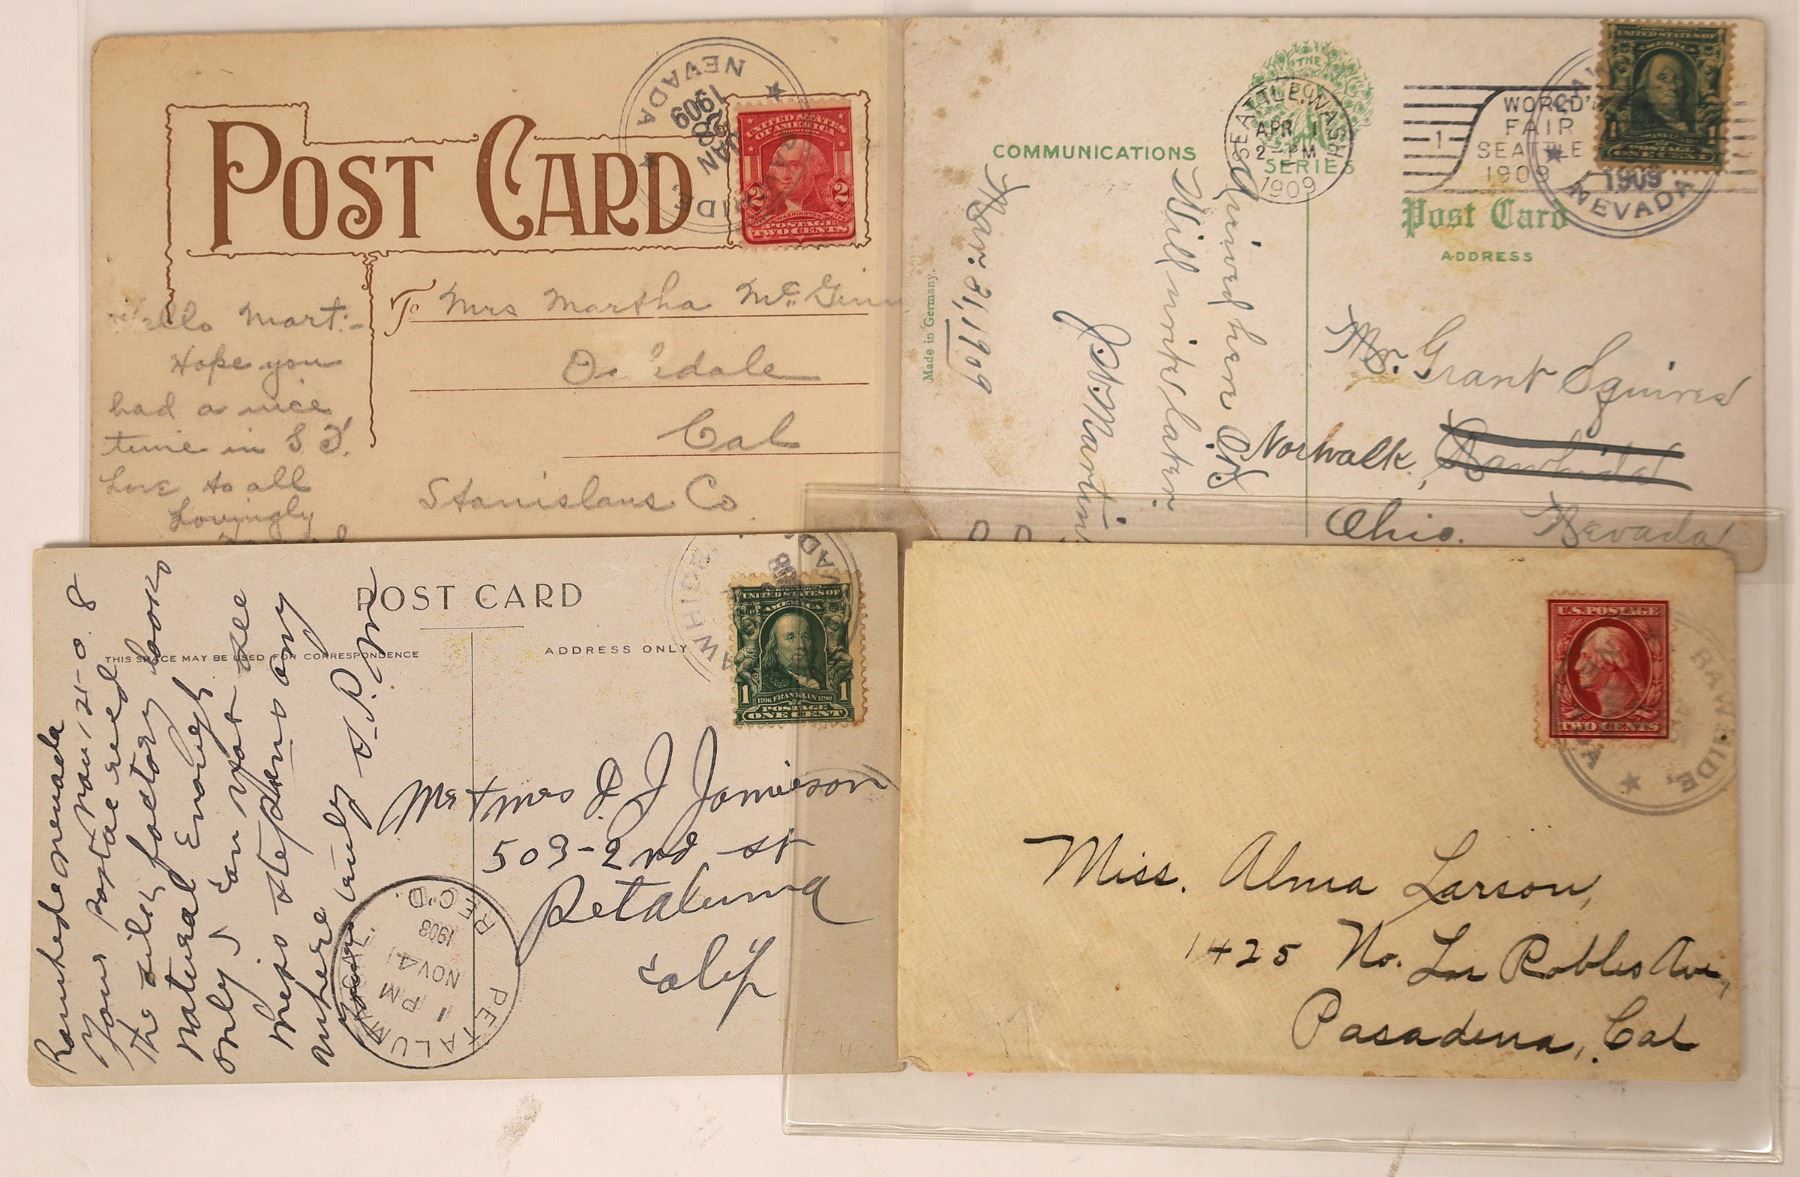 POST CARD
NEVADA
JAN
28
1909
UNITED STATES OF AMERICA
2 2
WASHINGTON
POSTAGE
TWO CENTS
Hello Mart:-
Hope you
had a nice
time in S F.
Love to all
Lovingly
To Mrs Martha Mc Ginn
Cal
Stanislaus Co
COMMUNICATIONS
THE
SERIES
SEATTLE, WASH
APR 1
2-PM
1909
1
WORLD'S
FAIR
SEATTLE
1909
UNITED STATES OF AMERICA
1 1
ONE CENT
1909
NEVADA
Post Card
ADDRESS
Made in Germany.
Mar. 21, 1909
Arrived here
Will write later.
J. W. Martin
Mr. Grant Squires
Norwalk, Rawhide
Ohio. Nevada
POST CARD
THIS SPACE MAY BE USED FOR CORRESPONDENCE
ADDRESS ONLY
AWHIDE
UNITED STATES OF AMERICA
1 1
1706 FRANKLIN 1790
POSTAGE
ONE CENT
Rawhide Nevada
Nov, 21-0.8
Your Postal recd
the silk factory looks
natural Enough
only I can not see
Miss Stephens any
where
Yours truly
Mr & Mrs J. J Jamieson
503-2nd st
Petaluma
Calif
PETALUMA, CAL.
NOV 24
1 PM
1908
REC'D.
U.S. POSTAGE
TWO CENTS
RAWHIDE,
NEVADA
Miss. Alma Larson,
1425 No. Los Robles Ave,
Pasadena, Cal